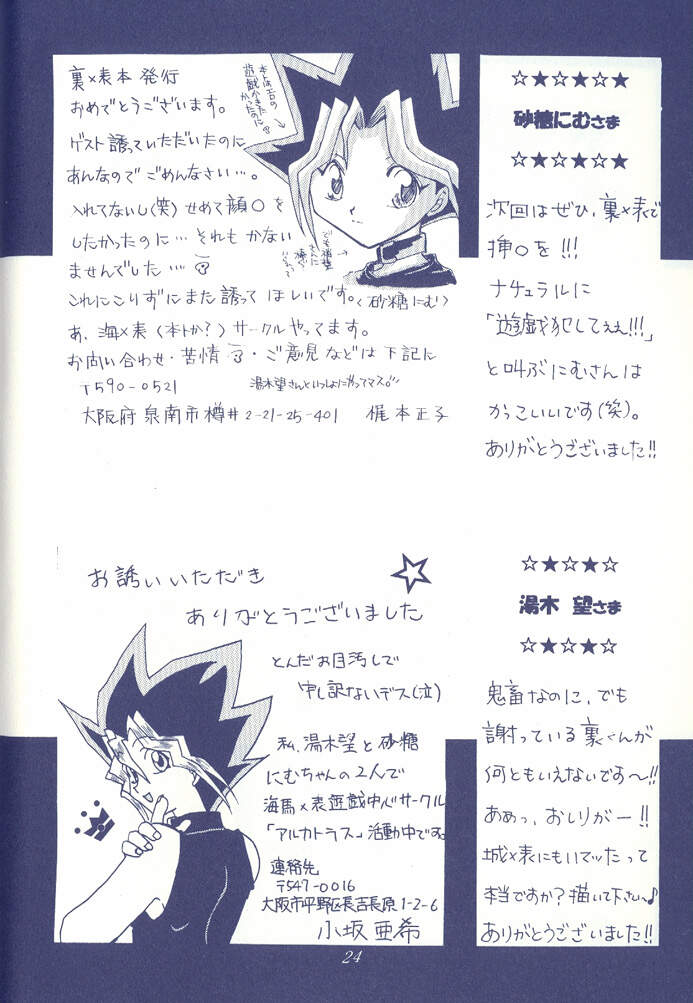 裏×表本 発行
おめでとうございます。
ゲスト誘っていただいたのに
あんなのでごめんなさい…。
入れてないし(笑)せめて顔○を
したかったのに…それもかない
ませんでした…
これにこりずにまた誘ってほしいです。〈砂糖にむ〉
あ、海×表(本トか?)サークルやってます。
お問い合わせ・苦情・ご意見などは下記に
〒590-0521
湯木望さんといっしょにやってマス。
大阪府泉南市樽井2-21-25-401 梶本正子
☆★☆★☆★
砂糖にむさま
☆★☆★☆★
次回はぜひ、裏×表で
挿○を!!!
ナチュラルに
「遊戯犯してぇぇ!!!」
と叫ぶにむさんは
かっこいいです(笑)。
ありがとうございました!!
お誘いいただき
ありがとうございました
とんだお目汚しで
申し訳ないデス(泣)
私、湯木望と砂糖
にむちゃんの2人で
海馬×表遊戯中心サークル
「アルカトラス」活動中です。
連絡先
〒547-0016
大阪市平野区長吉長原1-2-6
小坂亜希
☆★☆★☆
湯木 望さま
☆★☆★☆
鬼畜なのに、でも
謝っている裏くんが
何ともいえないです〜!!
あぁっ、おしりがー!!
城×表にもいてッたって
本当ですか?描いて下さい♪
ありがとうございました!!
24